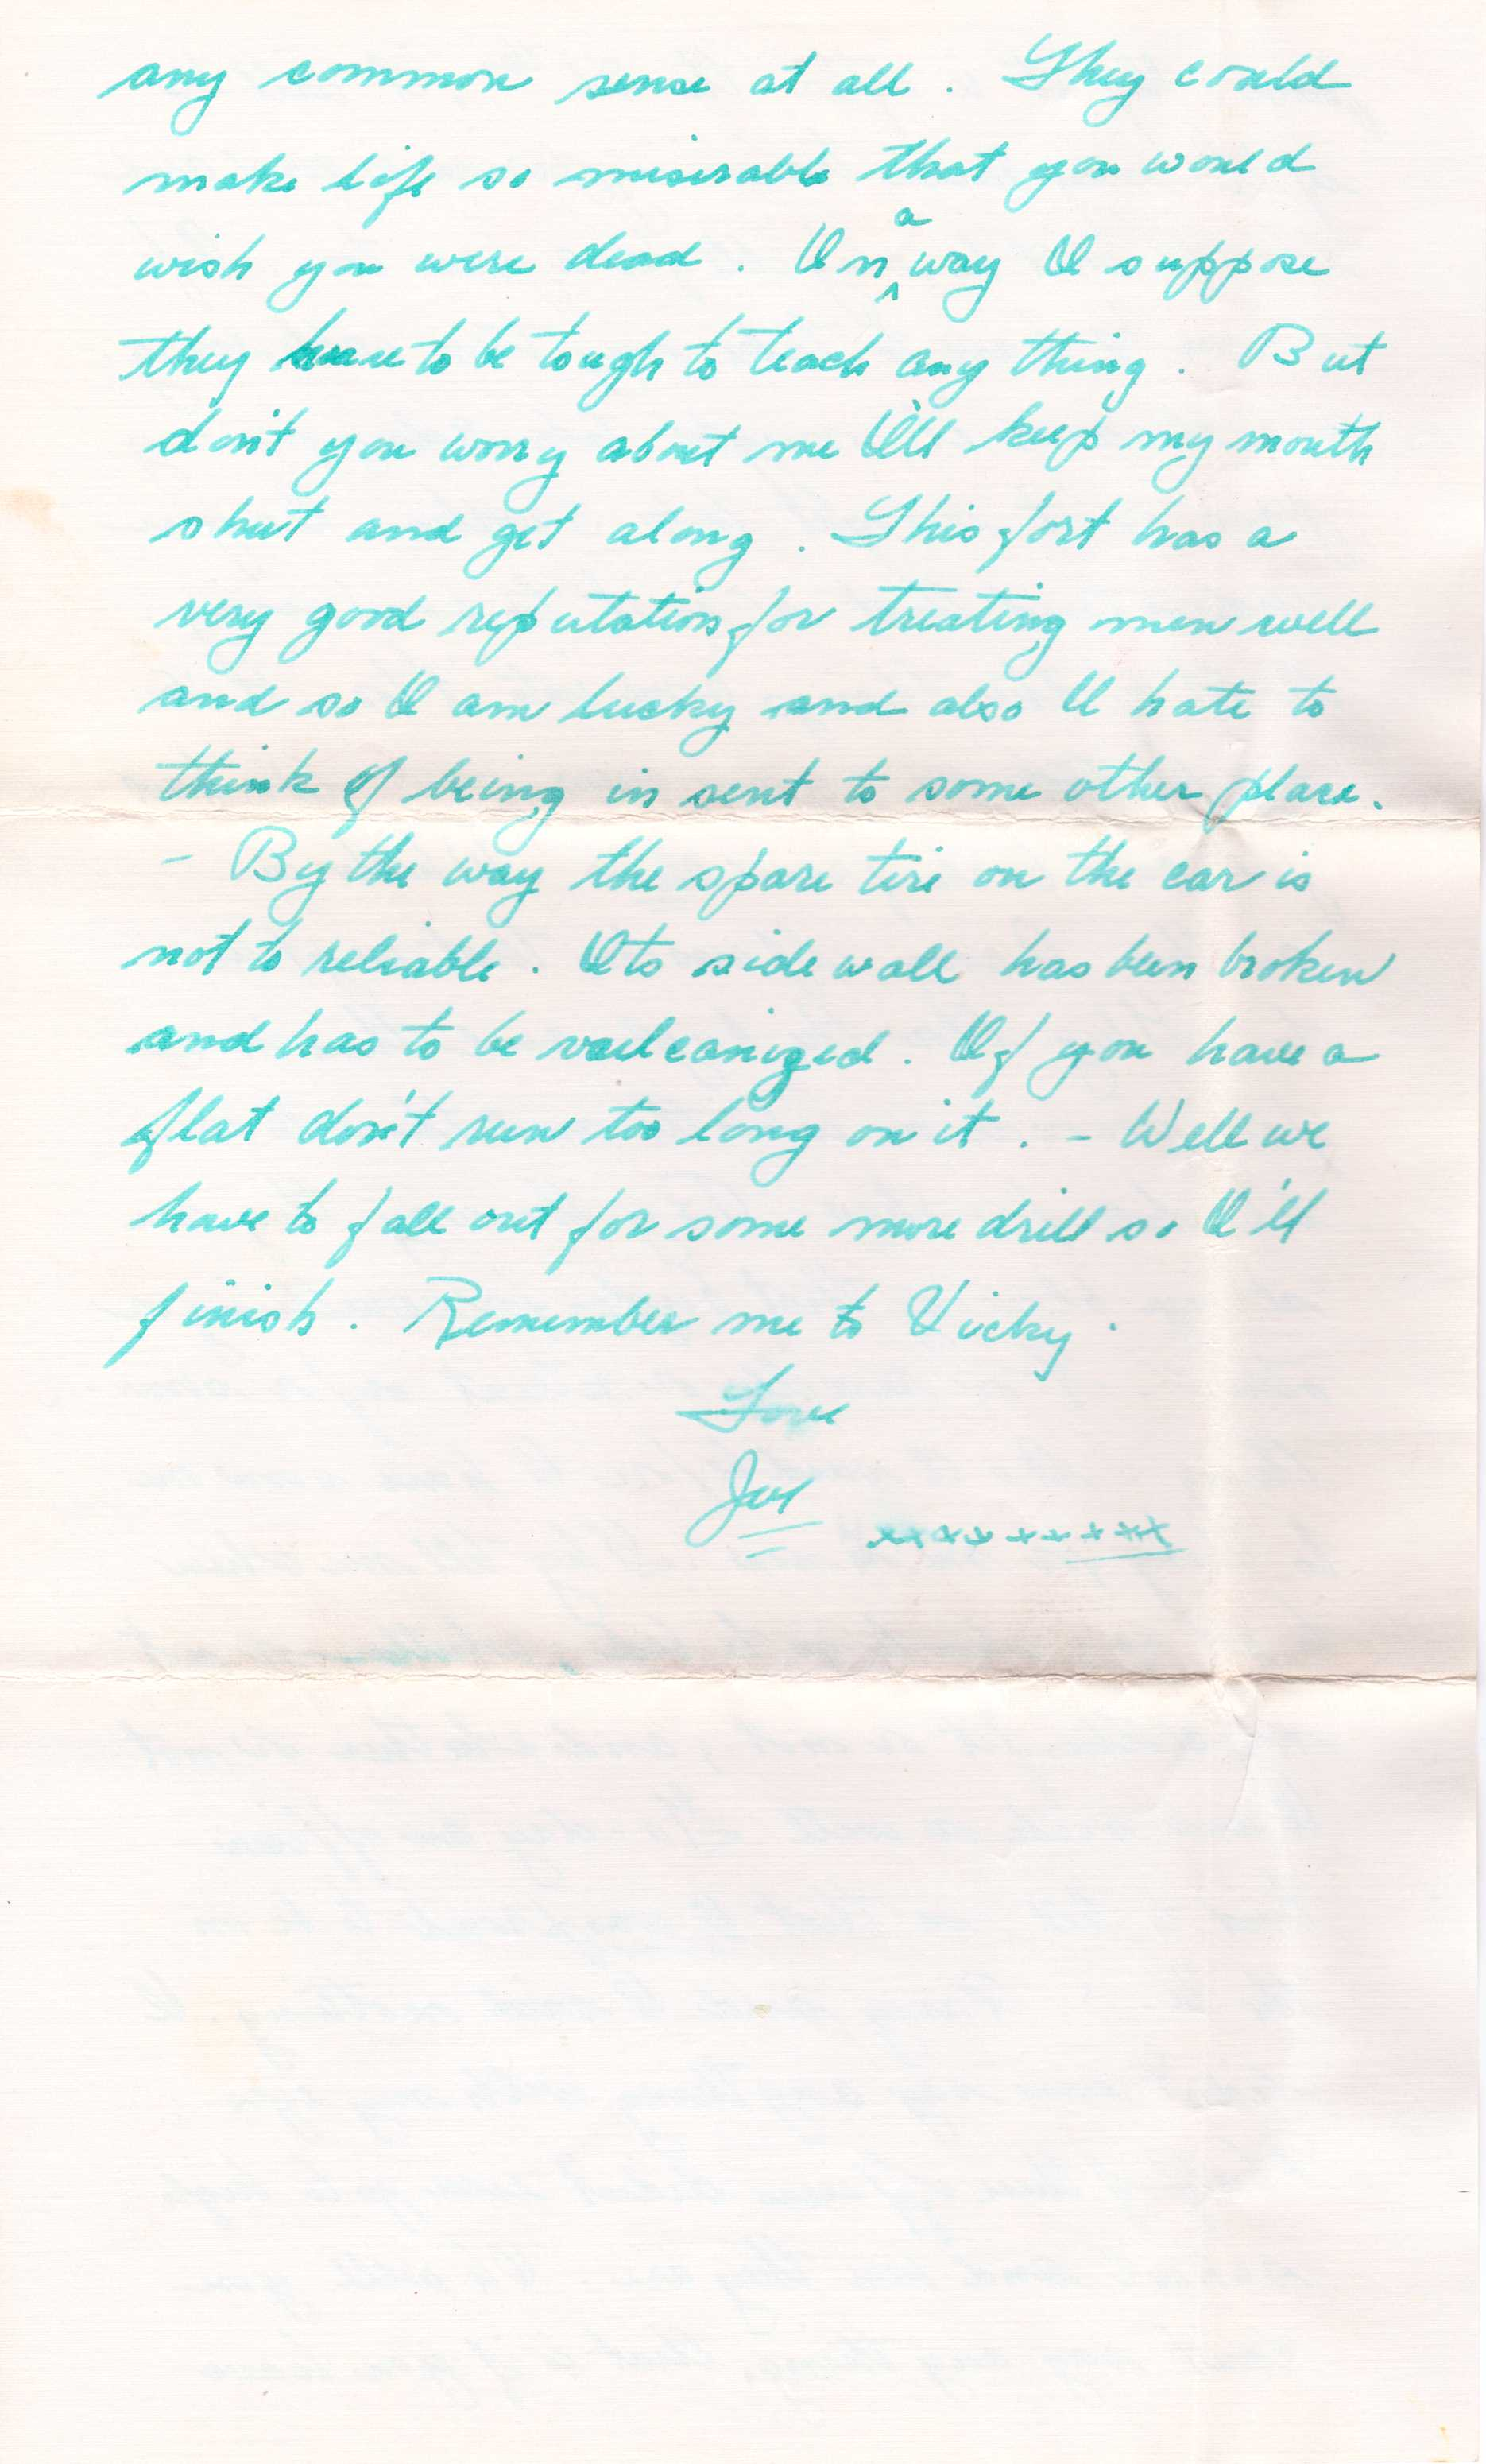 any common sense at all. They could
make life so miserable that you would
wish you were dead. In a way I suppose
they have to be tough to teach any thing. But
don't you worry about me I'll keep my mouth
shut and get along. This fort has a
very good reputation for treating men well
and so I am lucky and also I hate to
think of being in sent to some other place.
- By the way the spare tire on the car is
not to reliable. Its side wall has been broken
and has to be vaulcanized. If you have a
flat don't run too long on it. - Well we
have to fall out for some more drill so I'll
finish. Remember me to Vicky.
Love
Joe xxxxxxxxxx